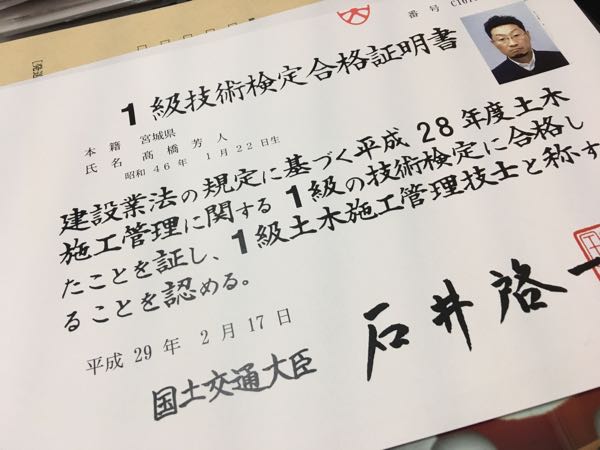 番号
1級技術検定合格証明書
本籍 宮城県
氏名 髙橋芳人
昭和46年 1月22日生
建設業法の規定に基づく平成28年度土木
施工管理に関する1級の技術検定に合格し
たことを証し、1級土木施工管理技士と称す
ることを認める。
平成29年 2月17日
国土交通大臣 石井啓一